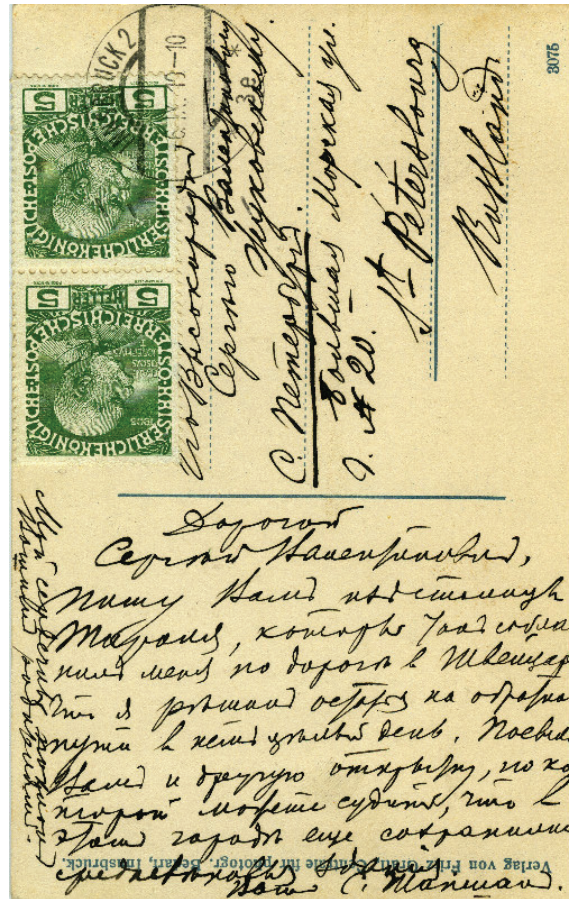 5 HELLER 5
KAISERLICHE KÖNIGLICHE ÖSTERREICHISCHE POST
5 HELLER 5
KAISERLICHE KÖNIGLICHE ÖSTERREICHISCHE POST
INNSBRUCK 2
* 3e *
3075
Его Высокородію
Сергѣю Валентиновичу
Жуковскому.
С. Петербургъ.
Большая Морская ул.
д. № 20.
St Pétersbourg
Russland
Дорогой
Сергѣй Валентиновичъ,
пишу Вамъ
Тироля, который
меня по дорогѣ в Швейцар
что я рѣшилъ на обратно
пути в немъ цѣлый день.
Вамъ и другую открытку, по ко
торой можете судить, что в
этомъ городѣ еще сохранили
средневѣковыя зданія.
Вашъ С.
Verlag von Fritz Gratl, Centrale für photogr. Bedarf, Innsbruck.